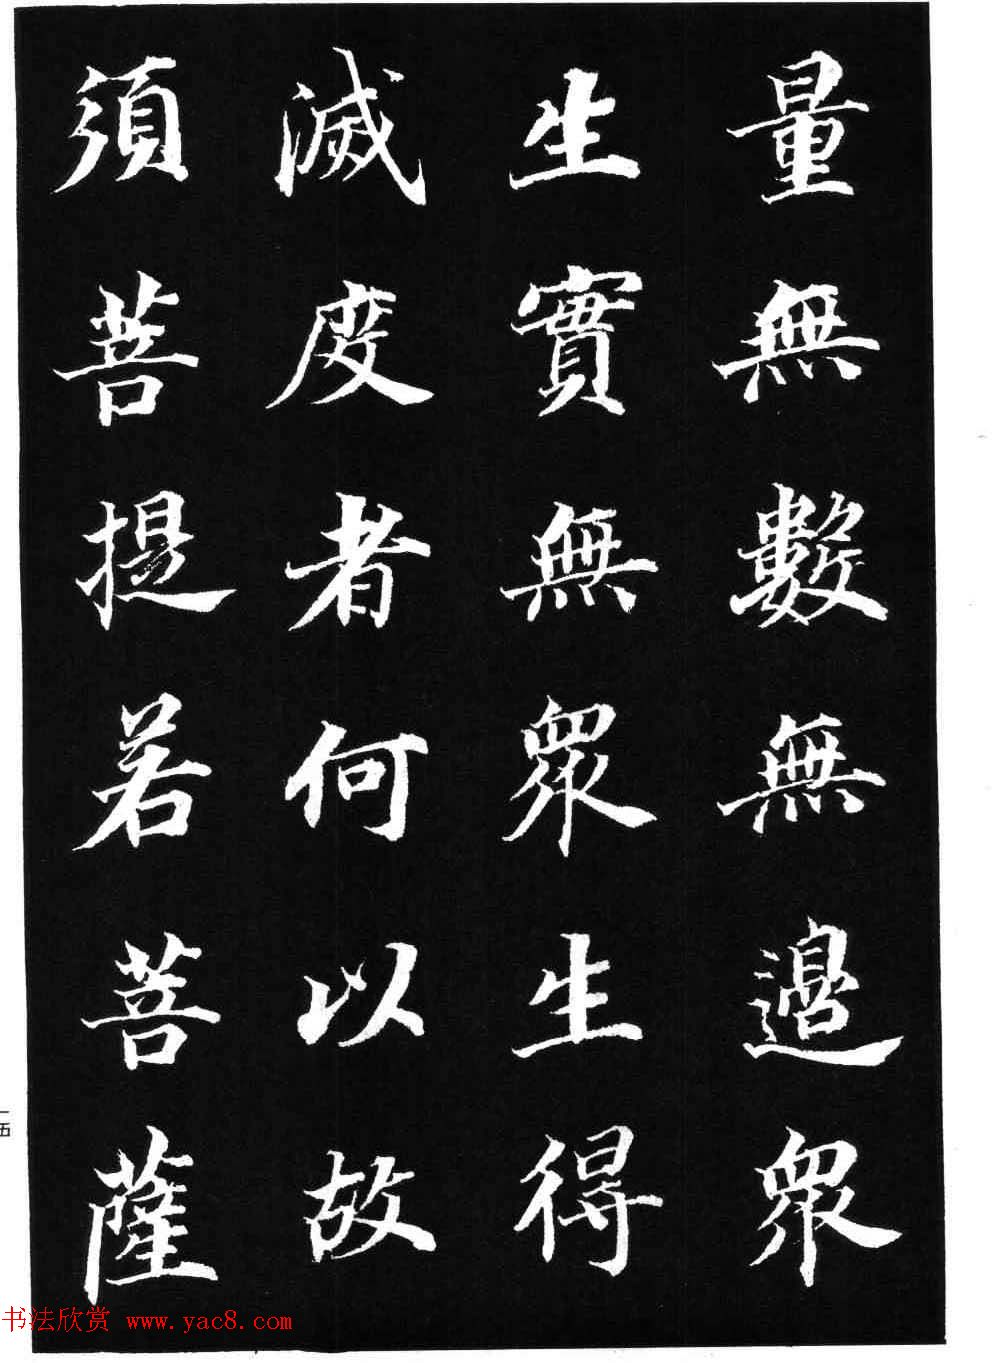 量無數無邊眾
生實無眾生得
滅度者何以故
須菩提若菩薩
一五
书法欣赏 www.yac8.com